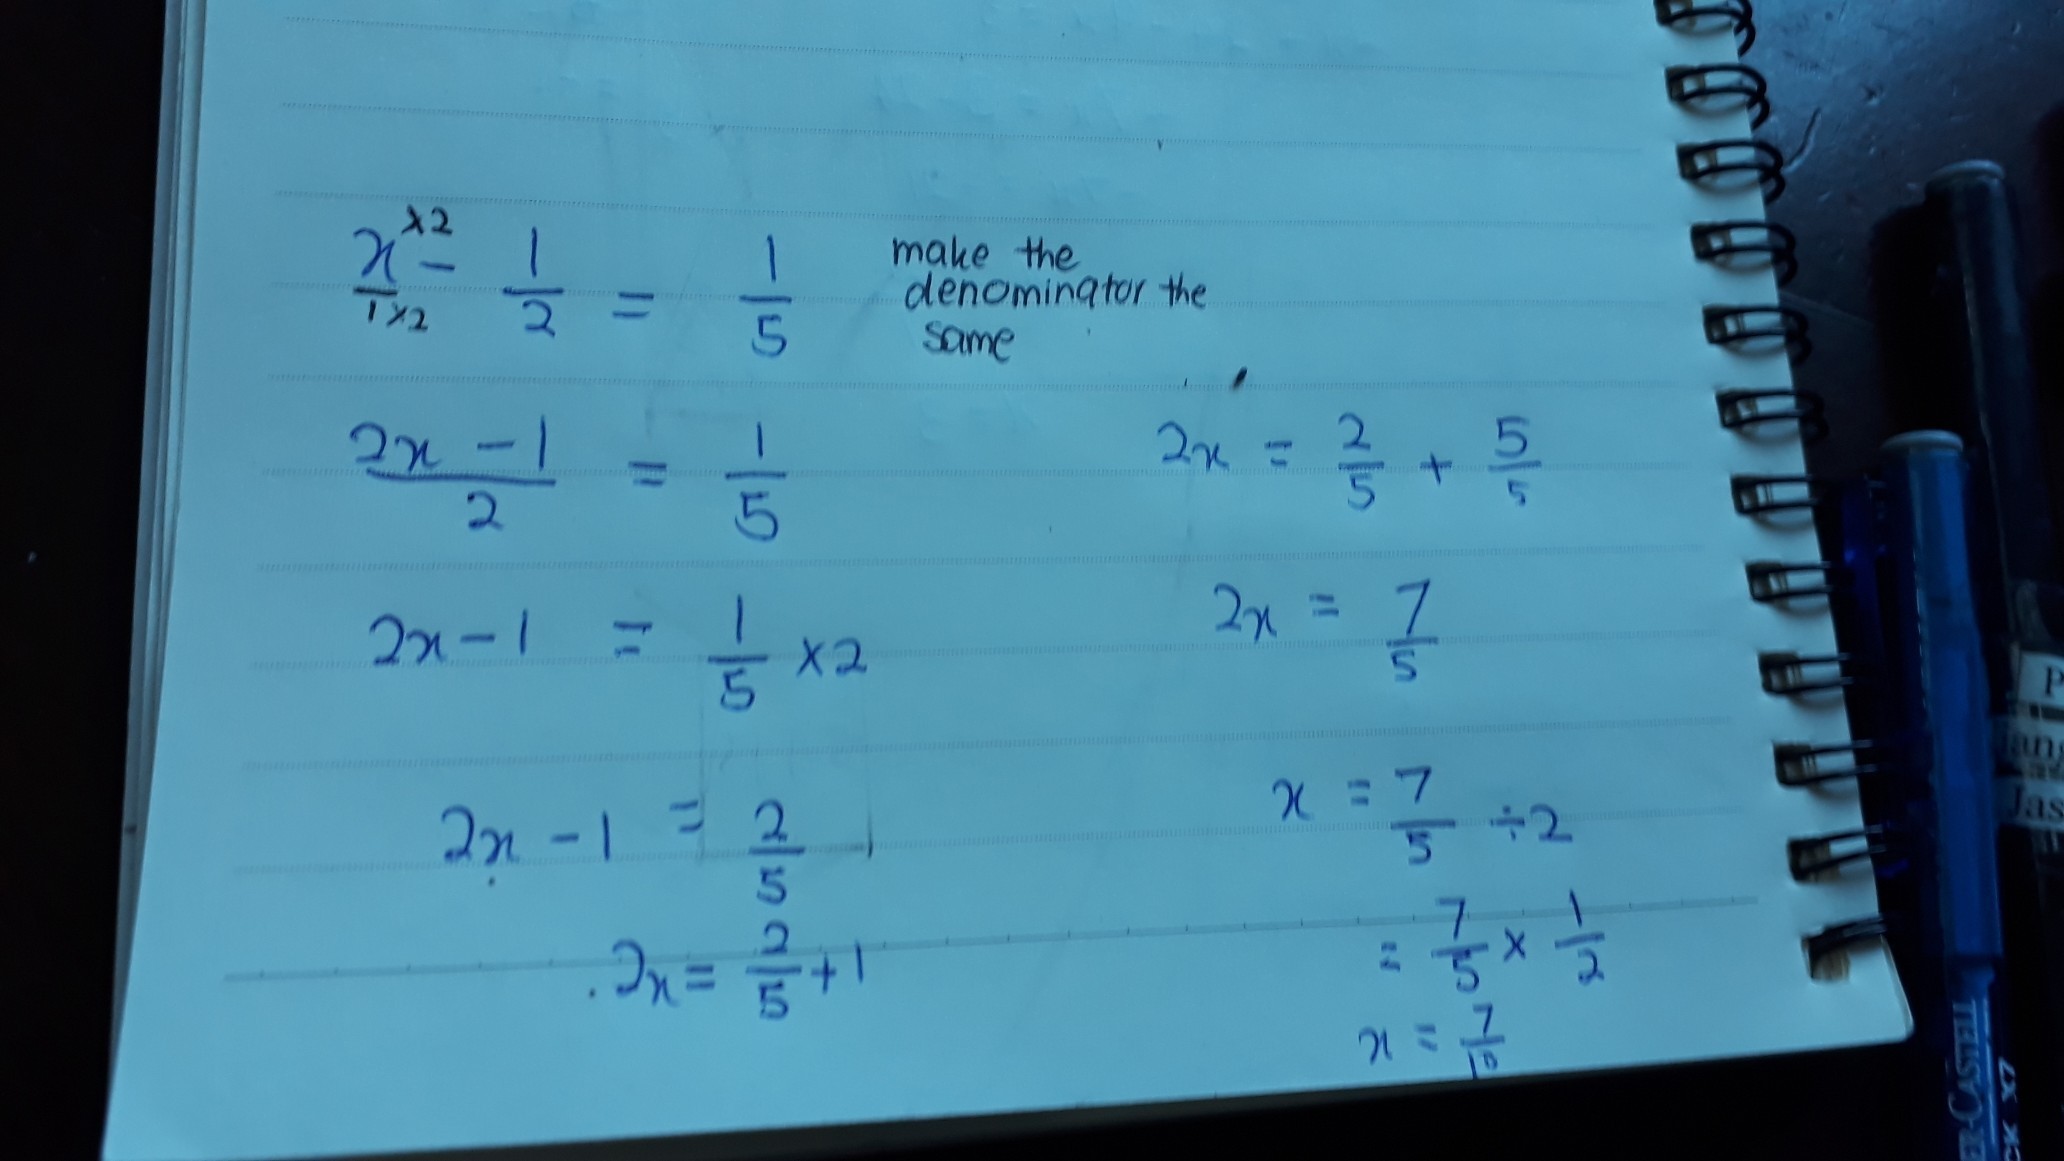 x×2/1×2 − 1/2 = 1/5
make the
denominator the
same
2x − 1/2 = 1/5
2x − 1 = 1/5 ×2
2x − 1 = 2/5
2x = 2/5 + 1
2x = 2/5 + 5/5
2x = 7/5
x = 7/5 ÷2
= 7/5 × 1/2
x = 7/10
P
Jas
CASTELL
CK X7